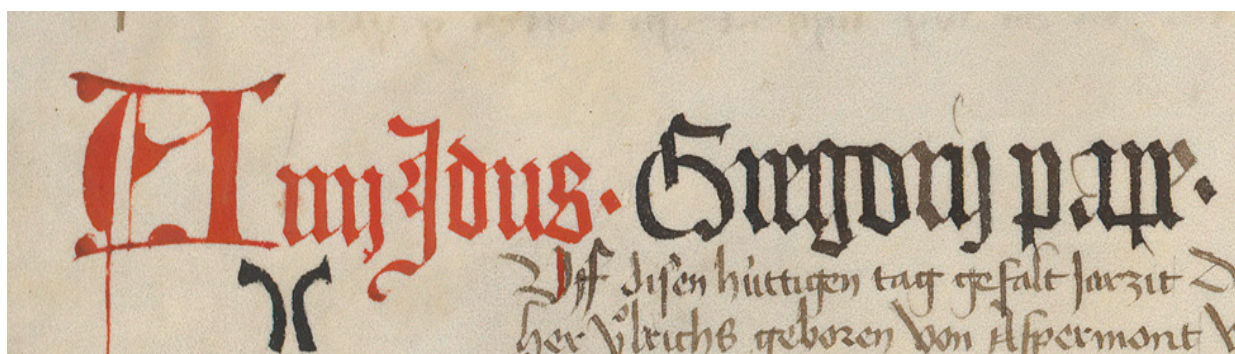 A iiij Jdus. Gregorij pape.
Vff disen hüttigen tag gefalt Jarzit
her Vͦlrichs geboren von Aspermont